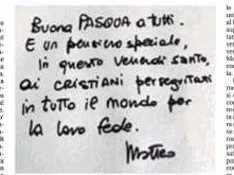 Buona PASQUA a tutti.
E un pensiero speciale,
in questo venerdì santo,
ai CRISTIANI perseguitati
in tutto il mondo per
la loro fede.
Matteo